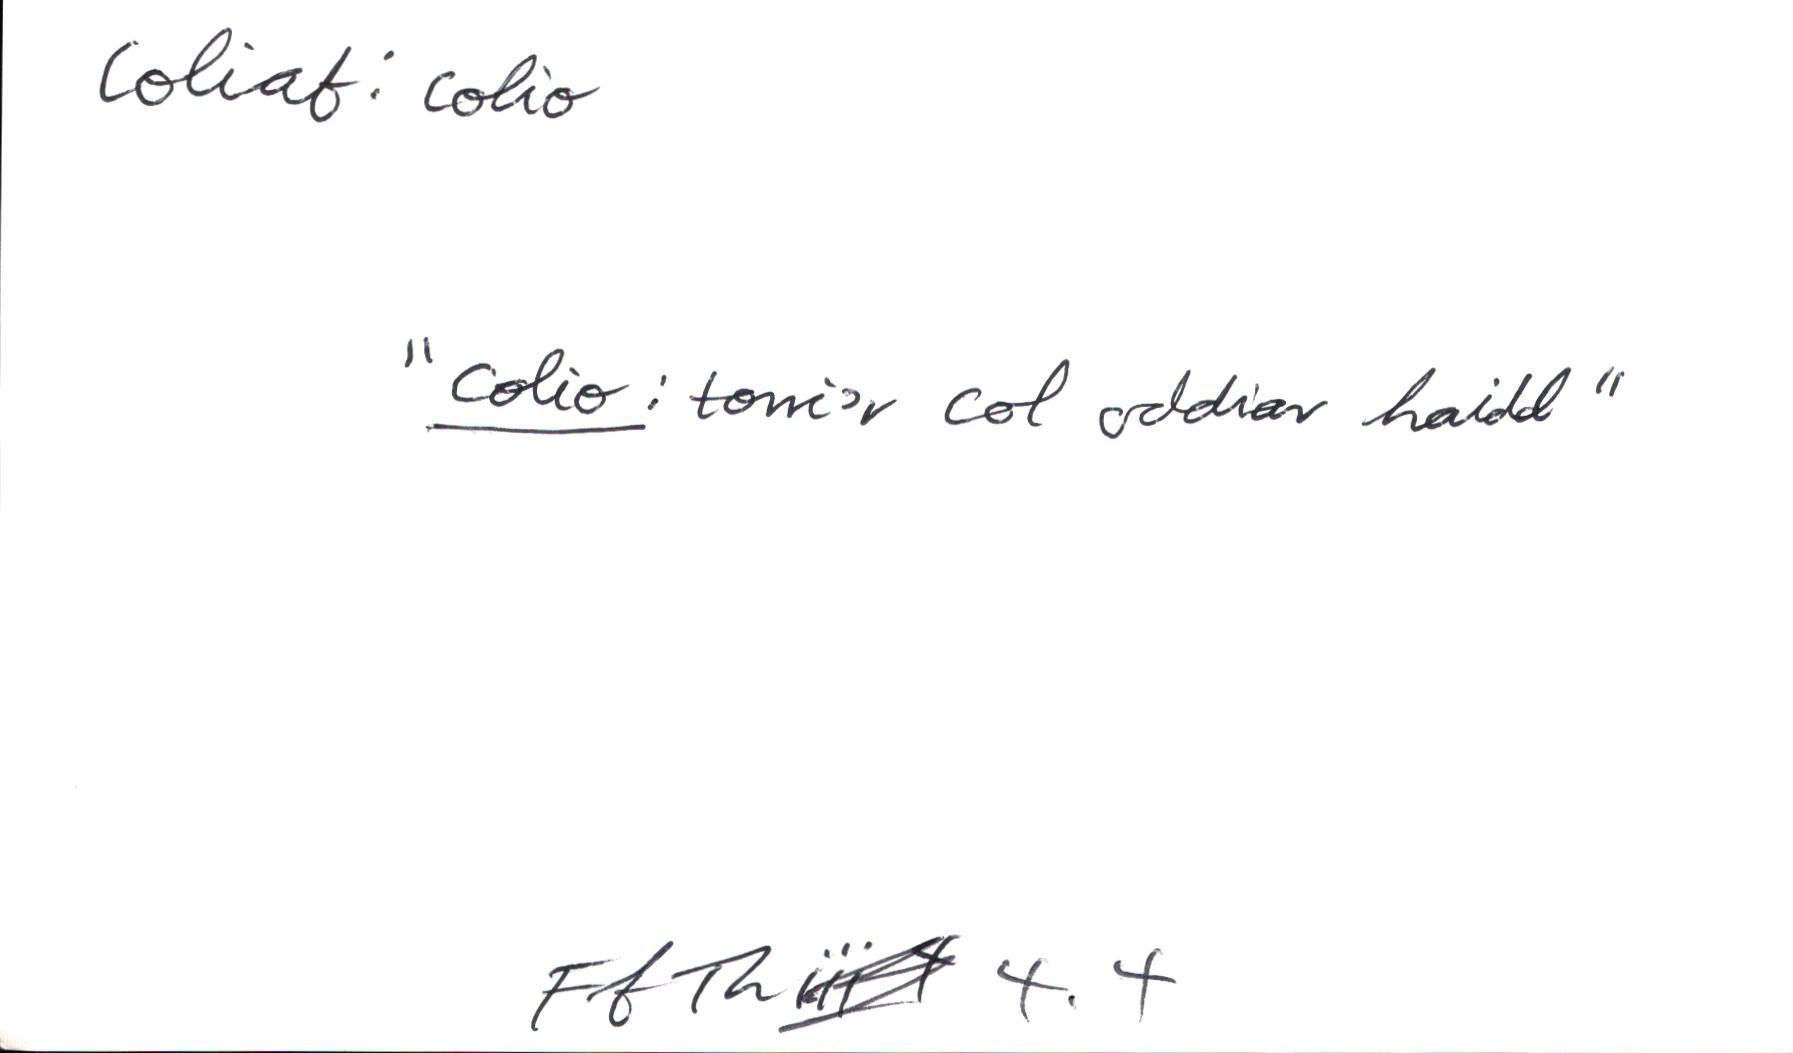 Coliaf: colio
"Colio: torri'r col oddiar haidd"
Ff Th 4.4